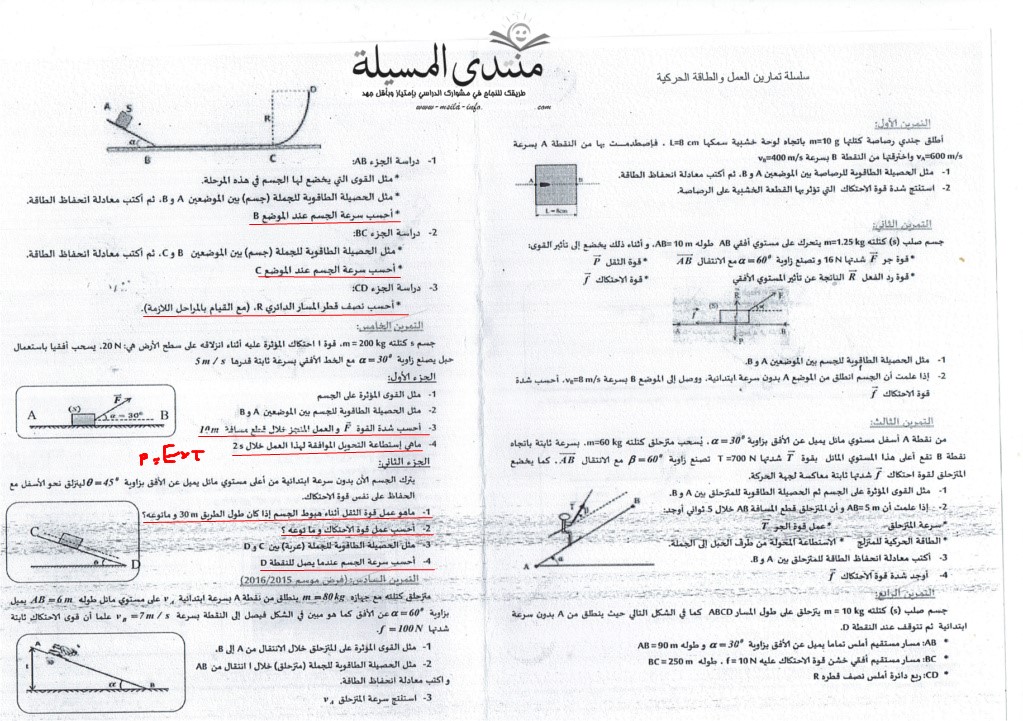 منتدى المسيلة
طريقك للنجاح في مشوارك الدراسي بإمتياز وبأقل جهد
www-msila-info .com
سلسلة تمارين العمل والطاقة الحركية
التمرين الأول:
أطلق جندي رصاصة كتلتها m=10 g باتجاه لوحة خشبية سمكها L=8 cm . فإصطدمت بها من النقطة A بسرعة
vA=600 m/s واخترقتها من النقطة B بسرعة vB=400 m/s
1- مثل الحصيلة الطاقوية للرصاصة بين الموضعين A و B. ثم أكتب معادلة انحفاظ الطاقة.
2- استنتج شدة قوة الاحتكاك التي تؤثر بها القطعة الخشبية على الرصاصة.
A B
L = 8cm
التمرين الثاني:
جسم صلب (s) كتلته m=1.25 kg يتحرك على مستوي أفقي AB طوله AB= 10 m. و أثناء ذلك يخضع إلى تأثير القوى:
*قوة جر F شدتها 16 N و تصنع زاوية α = 60° مع الانتقال AB *قوة الثقل P
*قوة رد الفعل R الناتجة عن تأثير المستوي الأفقي *قوة الاحتكاك f
(S)
A B
1- مثل الحصيلة الطاقوية للجسم بين الموضعين A و B.
2- إذا علمت أن الجسم انطلق من الموضع A بدون سرعة ابتدائية. ووصل إلى الموضع B بسرعة vB=8 m/s. أحسب شدة
قوة الاحتكاك f
التمرين الثالث:
من نقطة A أسفل مستوي مائل يميل عن الأفق بزاوية α = 30° . يُسحب متزحلق كتلته m=60 kg. بسرعة ثابتة باتجاه
نقطة B تقع أعلى هذا المستوي المائل بقوة T شدتها T =700 N تصنع زاوية β = 60° مع الانتقال AB. كما يخضع
المتزحلق لقوة احتكاك f شدتها ثابتة معاكسة لجهة الحركة.
1- مثل القوى المؤثرة على الجسم ثم الحصيلة الطاقوية للمتزحلق بين A و B.
2- إذا علمت أن AB= 5 m و أن المتزحلق قطع المسافة AB خلال 5 ثواني أوجد:
*سرعة المتزحلق *عمل قوة الجر T
* الطاقة الحركية للمتزلج * الاستطاعة المحولة من طرف الحبل إلى الجملة.
3- أكتب معادلة انحفاظ الطاقة للمتزحلق بين A و B.
4- أوجد شدة قوة الاحتكاك f
T β B
A α
التمرين الرابع:
جسم صلب (s) كتلته m = 10 kg يتزحلق على طول المسار ABCD كما في الشكل التالي حيث ينطلق من A بدون سرعة
ابتدائية ثم تتوقف عند النقطة D.
* AB: مسار مستقيم أملس تماما يميل عن الأفق بزاوية α = 30° و طوله AB = 90 m
* BC: مسار مستقيم أفقي خشن قوة الاحتكاك عليه f = 10 N . طوله BC = 250 m
* CD: ربع دائرة أملس نصف قطره R
A S α B C R D
1- دراسة الجزء AB:
*مثل القوى التي يخضع لها الجسم في هذه المرحلة.
*مثل الحصيلة الطاقوية للجملة (جسم) بين الموضعين A و B. ثم أكتب معادلة انحفاظ الطاقة.
*أحسب سرعة الجسم عند الموضع B
2- دراسة الجزء BC:
*مثل الحصيلة الطاقوية للجملة (جسم) بين الموضعين B و C. ثم أكتب معادلة انحفاظ الطاقة.
*أحسب سرعة الجسم عند الموضع C
3- دراسة الجزء CD:
*أحسب نصف قطر المسار الدائري R. (مع القيام بالمراحل اللازمة).
التمرين الخامس:
جسم s كتلته m = 200 kg. قوة ا احتكاك المؤثرة عليه أثناء انزلاقه على سطح الأرض هي: 20 N. يسحب أفقيا باستعمال
حبل يصنع زاوية α = 30° مع الخط الأفقي بسرعة ثابتة قدرها 5 m / s
الجزء الأول:
1- مثل القوى المؤثرة على الجسم
2- مثل الحصيلة الطاقوية للجسم بين الموضعين A و B
3- أحسب شدة القوة F و العمل المنجز خلال قطع مسافة 10 m
4- ماهي إستطاعة التحويل الموافقة لهذا العمل خلال 2 s
A (S) F α = 30° B
الجزء الثاني:
يترك الجسم الآن بدون سرعة ابتدائية من أعلى مستوي مائل يميل عن الأفق بزاوية θ = 45° لينزلق نحو الأسفل مع
الحفاظ على نفس قوة الاحتكاك.
1- ماهو عمل قوة الثقل أثناء هبوط الجسم إذا كان طول الطريق 30 m و مانوعه؟
2- أحسب عمل قوة الاحتكاك و ما نوعه ؟
3- مثل الحصيلة الطاقوية للجملة (عربة) بين C و D
4- أحسب سرعة الجسم عندما يصل للنقطة D
C θ D
التمرين السادس: (فرض موسم 2016/2015)
متزحلق كتلته مع جهازه m = 80 kg ينطلق من نقطة A بسرعة ابتدائية vA على مستوي مائل طوله AB = 6 m يميل
بزاوية α = 60° عن الأفق كما هو مبين في الشكل فيصل إلى النقطة بسرعة vB = 7 m / s علما أن قوى الاحتكاك ثابتة
شدتها f = 100 N.
1- مثل القوى المؤثرة على المتزحلق خلال الانتقال من A إلى B.
2- مثل الحصيلة الطاقوية للجملة (متزحلق) خلال ا انتقال من AB
و اكتب معادلة انحفاظ الطاقة.
3- استنتج سرعة المتزحلق vA
A α B